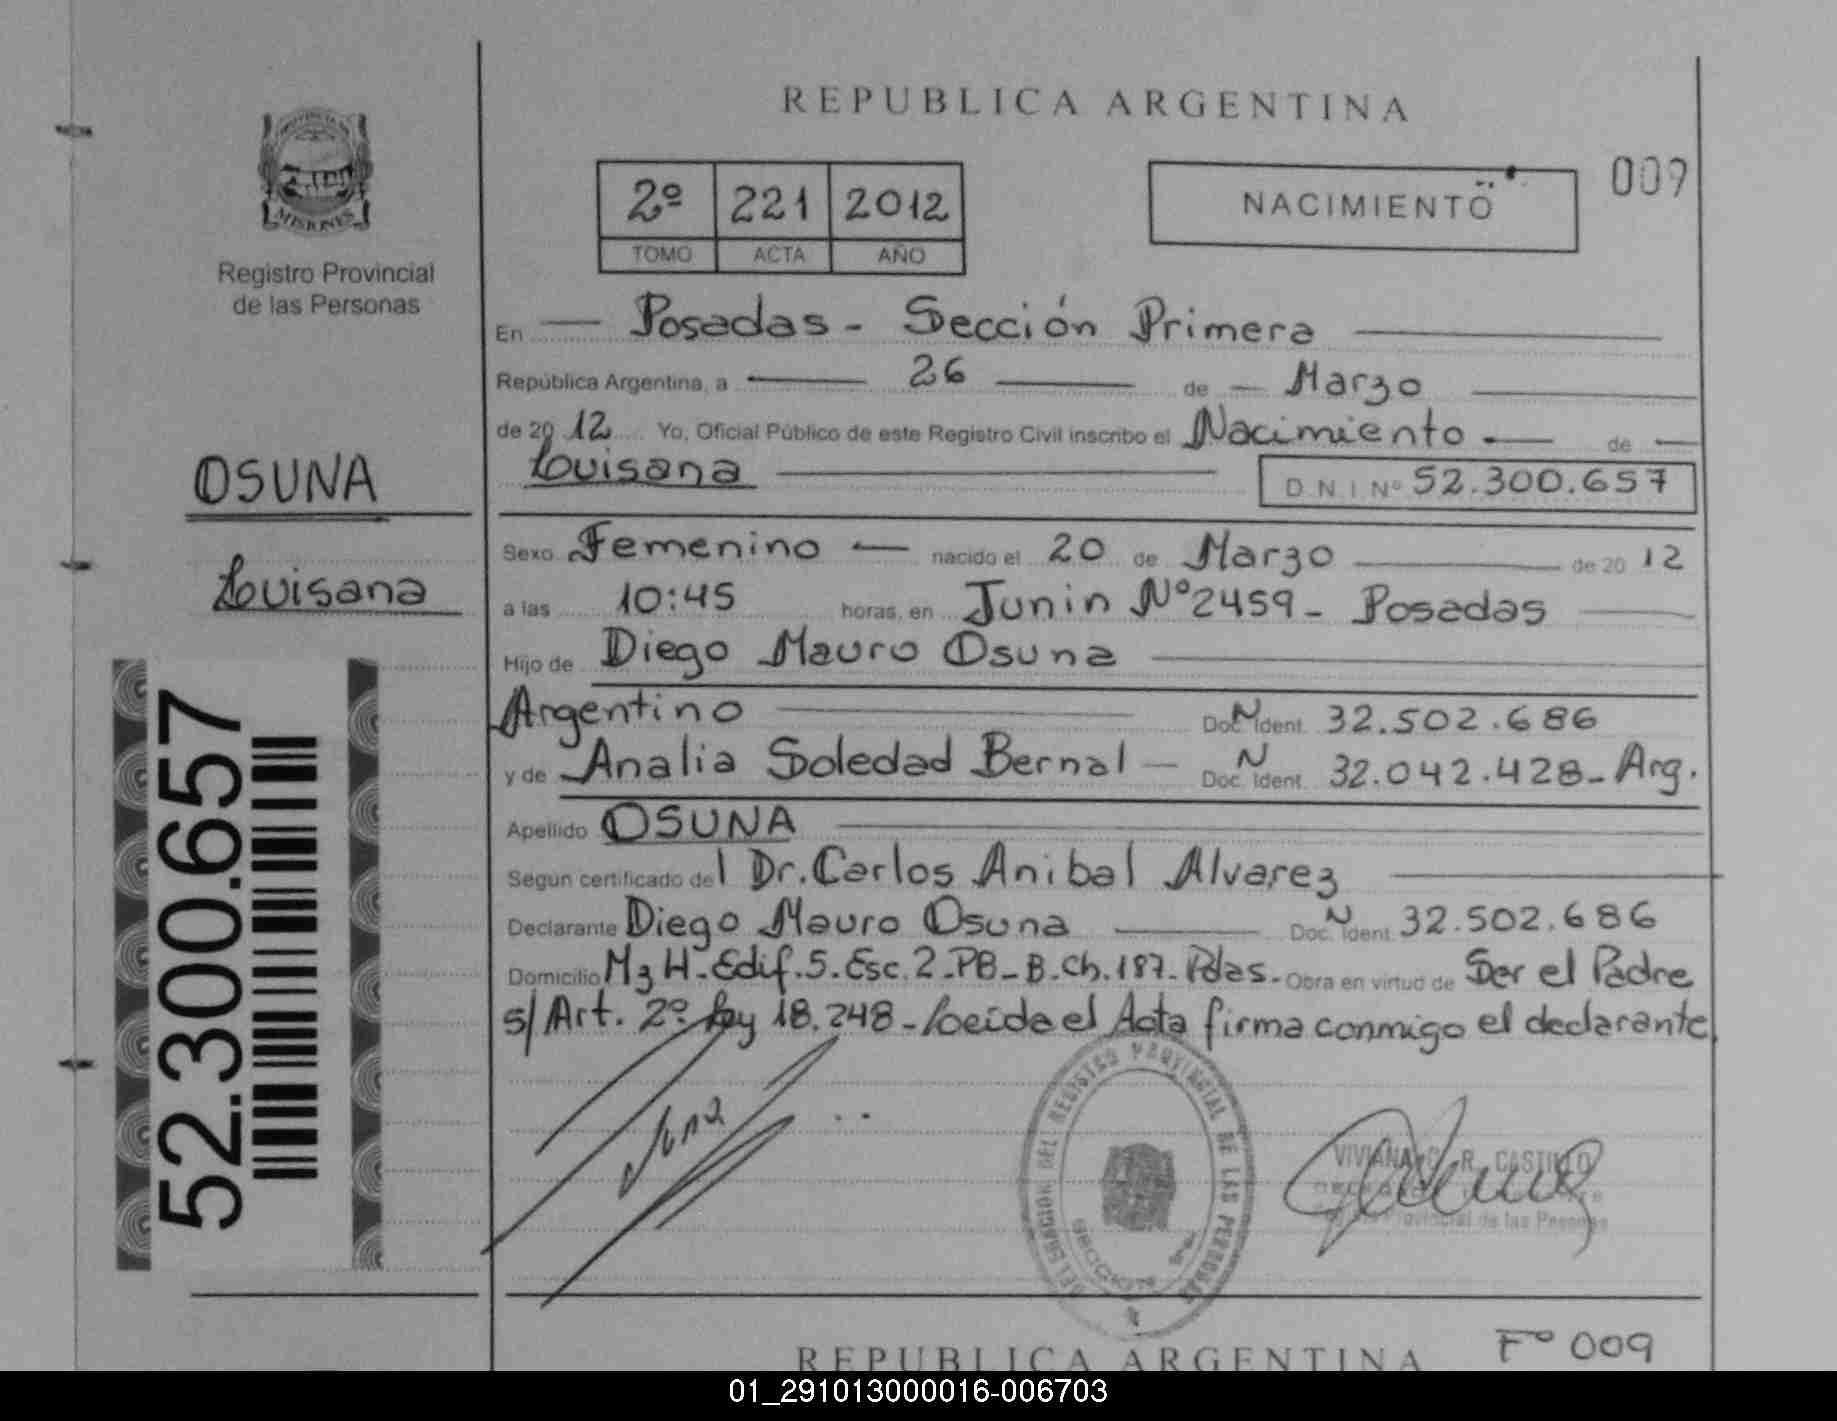 REPUBLICA ARGENTINA
PROVINCIA DE
MISIONES
Registro Provincial
de las Personas
2º 221 2012
TOMO ACTA AÑO
NACIMIENTO
009
En Posadas - Sección Primera
República Argentina, a 26 de Marzo
de 2012 Yo, Oficial Público de este Registro Civil inscribo el Nacimiento de
Louisana
D N I Nº 52.300.657
OSUNA
Louisana
Sexo Femenino nacido el 20 de Marzo de 2012
a las 10:45 horas, en Junin Nº 2459 - Posadas
Hijo de Diego Mauro Osuna
Argentino Doc. N Ident. 32.502.686
y de Analia Soledad Bernal - Doc. N Ident. 32.042.428 - Arg.
Apellido OSUNA
Según certificado del Dr. Carlos Anibal Alvarez
Declarante Diego Mauro Osuna Doc. N Ident. 32.502.686
Domicilio Mz H - Edif. 5. Esc. 2 - PB - B. Ch. 187 - Pdas. Obra en virtud de Ser el Padre
s/ Art. 2º Ley 18.248 - Leida el Acta firma conmigo el declarante
52.300.657
DELEGACION DEL REGISTRO PROVINCIAL DE LAS PERSONAS
VIVIANA R. CASTILLO
Provincial de las Personas
REPUBLICA ARGENTINA
Fº 009
01_291013000016-006703